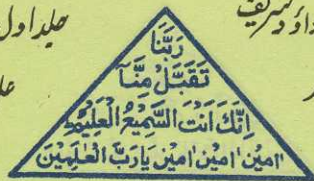 داؤد شریف
جلد اول
رَبَّنَا
تَقَبَّلْ مِنَّا
اِنَّكَ اَنْتَ السَّمِیْعُ الْعَلِیْمُ
اٰمین اٰمین اٰمین یَا رَبَّ الْعٰلَمِیْنَ